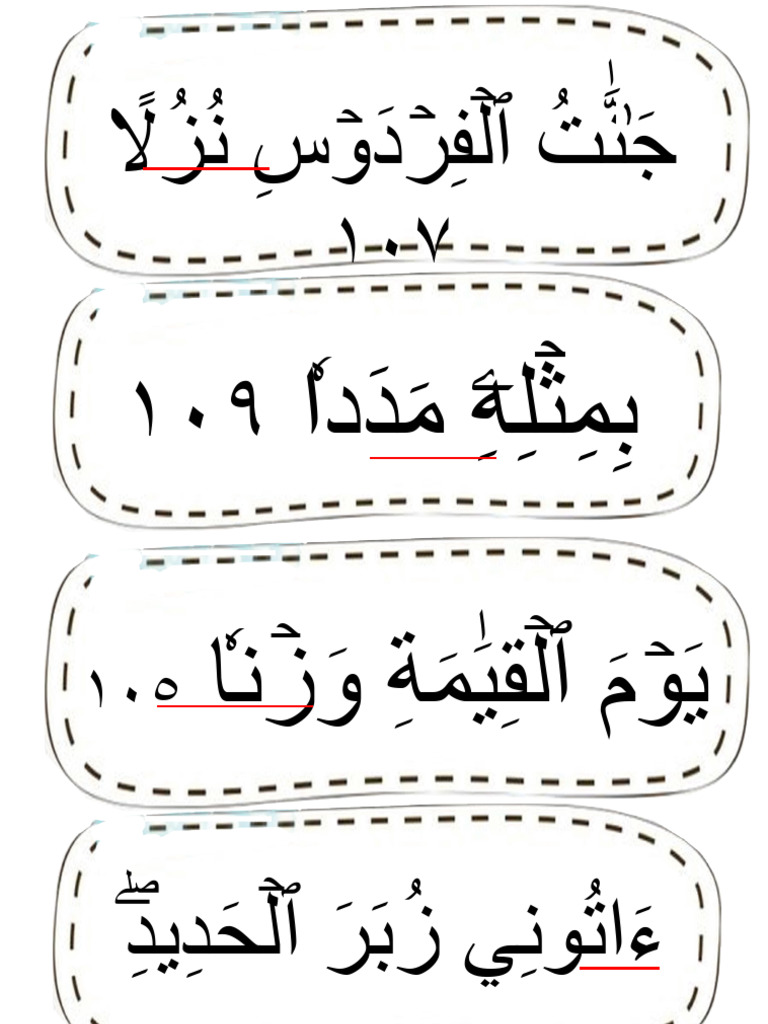 جَنَّٰتُ ٱلۡفِرۡدَوۡسِ نُزُلًا
١٠٧
بِمِثۡلِهِۦ مَدَدٗا ١٠٩
يَوۡمَ ٱلۡقِيَٰمَةِ وَزۡنٗا ١٠٥
ءَاتُونِي زُبَرَ ٱلۡحَدِيدِۖ